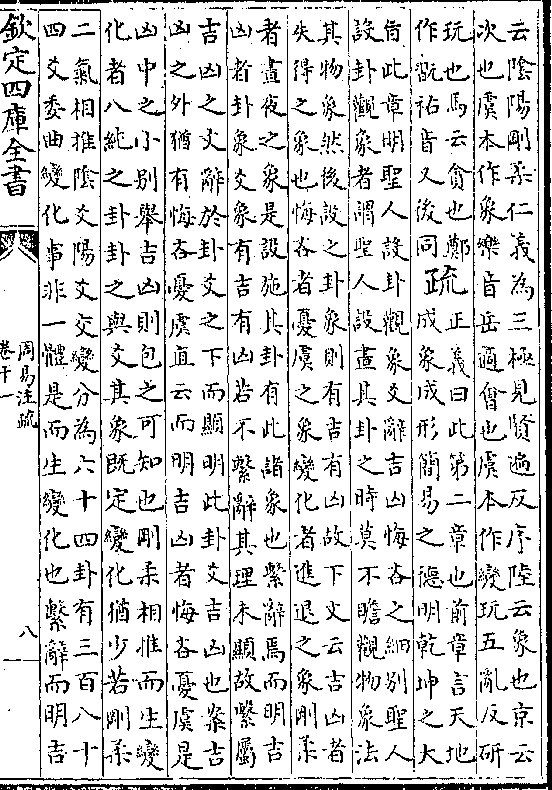 云陰陽剛柔仁義為三極見賢遍反序陸云象也京云
次也虞本作象樂音岳適會也虞本作變玩五亂反研
玩也馬云貪也鄭
作翫祐音又後同
疏
正義曰此第二章也前章言天地
成象成形簡易之德明乾坤之大
旨此章明聖人設卦觀象爻辭吉凶悔吝之細別聖人
設卦觀象者謂聖人設畫其卦之時莫不瞻觀物象法
其物象然後設之卦象則有吉有凶故下文云吉凶者
失得之象也悔吝者憂虞之象變化者進退之象剛柔
者晝夜之象是設施其卦有此諸象也繫辭焉而明吉
凶者卦象爻象有吉有凶若不繫辭其理未顯故繫屬
吉凶之文辭於卦爻之下而顯明此卦爻吉凶也案吉
凶之外猶有悔吝憂虞直云而明吉凶者悔吝憂虞是
凶中之小別舉吉凶則包之可知也剛柔相推而生變
化者八純之卦卦之與爻其象既定變化猶少若剛柔
二氣相推陰爻陽爻交變分為六十四卦有三百八十
四爻委曲變化事非一體是而生變化也繫辭而明吉
欽定四庫全書
周易注疏
卷十一
八